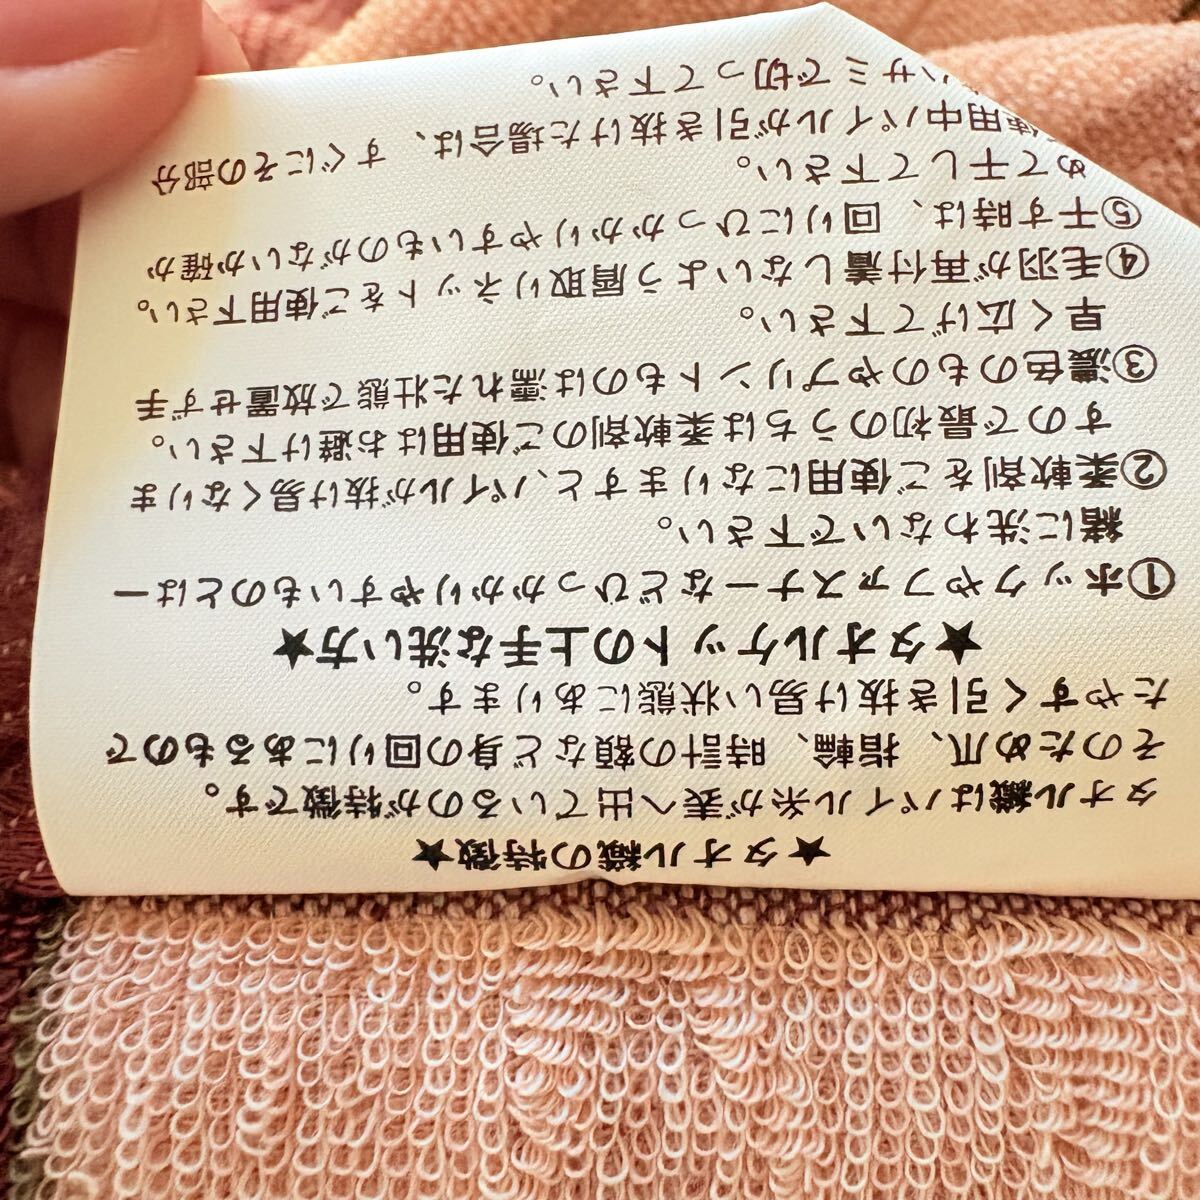 ★タオル織の特徴★
タオル織はパイル糸が表へ出ているのが特徴です。
そのため爪、指輪、時計の類など身の回りにあるもので
たやすく引き抜け易い状態にあります。
★タオルケットの上手な洗い方★
①ホックやファスナーなどひっかかりやすいものとは一
緒に洗わないで下さい。
②柔軟剤をご使用になりますと、パイルが抜け易くなりま
すので最初のうちは柔軟剤のご使用はお避け下さい。
③濃色のものやプリントものは濡れた状態で放置せず手
早く広げて下さい。
④毛羽が再付着しないよう屑取りネットをご使用下さい。
⑤干す時は、回りにひっかかりやすいものがないか確か
めて干して下さい。
使用中パイルが引き抜けた場合は、すぐにその部分
ハサミで切って下さい。